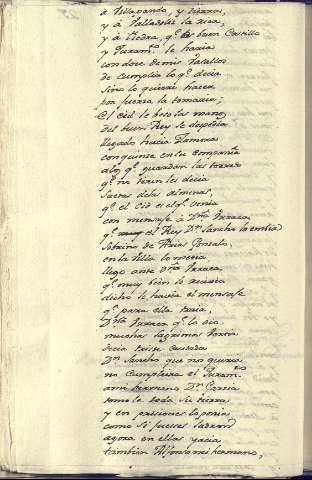 à Villalpando, y tierra,
y à Valladolid la rica,
y à Tiedra, qº es buen Castillo
y Juramtº le haria
con doce de mis vasallos
de cumplir lo qº decia
sino lo quiere hacer
por fuerza la tomaria;
El Cid le beso las manos,
del buen Rey se despidia
llegado havia à Zamora
con quince en su compañia
alos qº guardan las torres
qº no tiren les decia
saetas delas almenas,
qº el Cid es el qº venia
con mensaje à Dña Urraca,
qº el Rey Dn Sancho la embia
Sobrino de Arias Gonzalo,
en la Villa lo metia
llego ante Dña Urraca
qº muy bien lo recivia
dicho le havia el mensaje
qº para ella traia,
Dña Urraca qº lo oio
muchas lagrimas vertia
decia triste cuitada
Dn Sancho que me queria
no cumpliera el Juramtº
ami hermano Dn Garcia
tomole toda su tierra
y en prisiones lo ponia
como si fuese ladron
agora en ellas yacia
tambien Alfonso mi hermano,